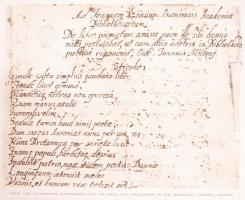 Ad Joannem Rousium Oxoniensis Academiae
Bibliothecarium
De libro Poematum amisso quem ille sibi denuo
mitti postulabat, ut cum aliis nostris in Bibliotheca
publica reponeret, Ode. Joannis Miltoni
Strophe 1
Gemelle cultu simplici gaudens liber,
Fronde licet gemina,
Munditieque nitens non operosa,
Quam manus attulit
Juvenilis olim,
Sedula tamen haud nimii poetae
Dum vagus Ausonias nunc per umbras
Nunc Britannica per vireta lusit
Insons populi, barbitoque devius
Indulsit patrio, mox itidem pectine Daunio
Longinquum intonuit melos
Vicinis, et humum vix tetigit pede